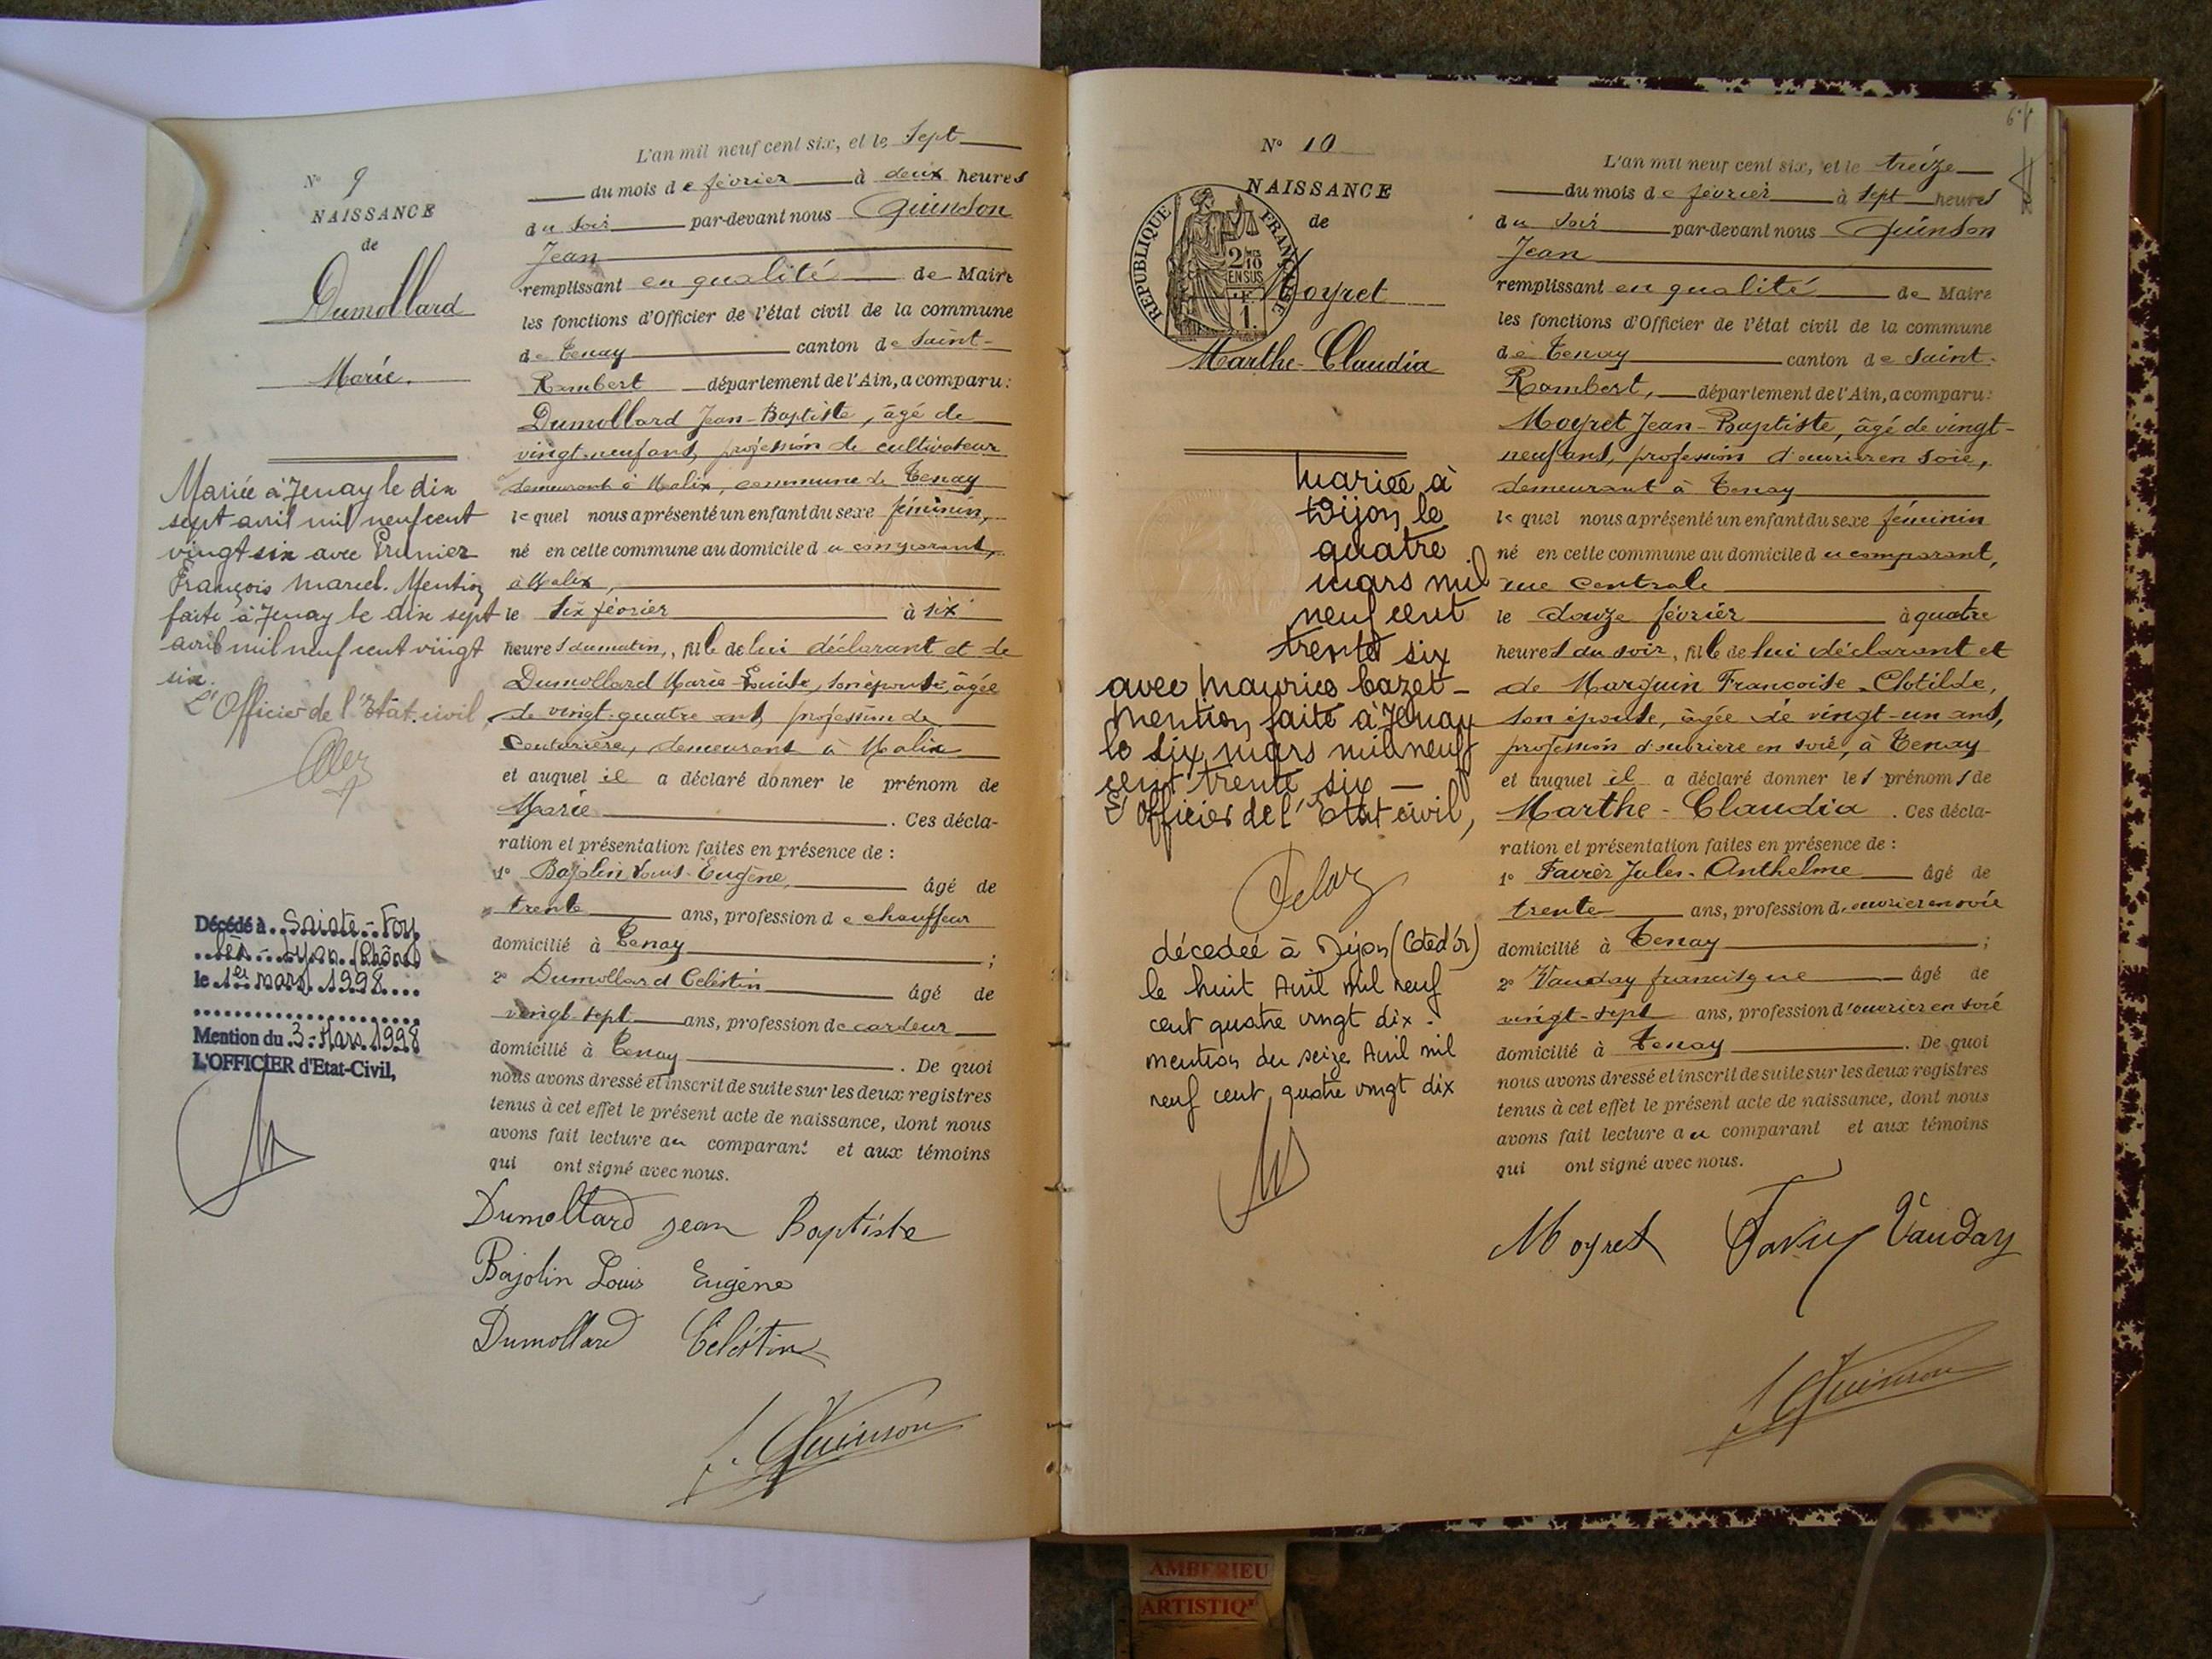 N° 9
NAISSANCE
de
Dumollard
Marie.
Mariée à Tenay le dix
sept avril mil neuf cent
vingt six avec Prunier
François Marcel. Mention
faite à Tenay le dix sept
avril mil neuf cent vingt
six.
L'Officier de l'Etat-civil,
Décédé à Sainte-Foy
lès-Lyon (Rhône)
le 1er mars 1998
Mention du 3 Mars 1998
L'OFFICIER d'Etat-Civil,
L'an mil neuf cent six, et le sept
du mois de février à deux heures
du soir par-devant nous Quinson
Jean
remplissant en qualité de Maire
les fonctions d'Officier de l'état civil de la commune
de Tenay canton de Saint-
Rambert département de l'Ain, a comparu:
Dumollard Jean-Baptiste, âgé de
vingt-neuf ans, profession de cultivateur
demeurant à Malix, commune de Tenay
lequel nous a présenté un enfant du sexe féminin,
né en cette commune au domicile du comparant,
à Malix,
le six février à six
heures du matin, fille de lui déclarant et de
Dumollard Marie-Louise, son épouse, âgée
de vingt-quatre ans, profession de
couturière, demeurant à Malix
et auquel il a déclaré donner le prénom de
Marie. Ces décla-
ration et présentation faites en présence de :
1° Bajolin Louis-Eugène, âgé de
trente ans, profession de chauffeur
domicilié à Tenay ;
2° Dumollard Célestin âgé de
vingt-sept ans, profession de cardeur
domicilié à Tenay. De quoi
nous avons dressé et inscrit de suite sur les deux registres
tenus à cet effet le présent acte de naissance, dont nous
avons fait lecture au comparant et aux témoins
qui ont signé avec nous.
Dumollard Jean Baptiste
Bajolin Louis Eugène
Dumollard Célestin
J. Quinson
N° 10
NAISSANCE
de
REPUBLIQUE FRANÇAISE
2/10 EN SUS
1F.
Moyret
Marthe-Claudia
Mariée à
Dijon le
quatre
mars mil
neuf cent
trente six
avec Maurice Cazet-
Mention faite à Tenay
le six mars mil neuf
cent trente six —
L'Officier de l'Etat civil,
décedeé à Dijon (Côte d'Or)
le huit Avril mil neuf
cent quatre vingt dix.
mention du seize Avril mil
neuf cent quatre vingt dix
L'an mil neuf cent six, et le treize
du mois de février à sept heures
du soir par-devant nous Quinson
Jean
remplissant en qualité de Maire
les fonctions d'Officier de l'état civil de la commune
de Tenay canton de Saint-
Rambert, département de l'Ain, a comparu:
Moyret Jean-Baptiste, âgé de vingt-
neuf ans, profession d'ouvrier en soie,
demeurant à Tenay
lequel nous a présenté un enfant du sexe féminin
né en cette commune au domicile du comparant,
rue centrale
le douze février à quatre
heures du soir, fille de lui déclarant et
de Marguin Françoise-Clotilde,
son épouse, âgée de vingt-un ans,
profession d'ouvrière en soie, à Tenay
et auquel il a déclaré donner les prénoms de
Marthe-Claudia. Ces décla-
ration et présentation faites en présence de :
1° Favier Jules-Anthelme âgé de
trente ans, profession d'ouvrier en soie
domicilié à Tenay ;
2° Vauday francisque âgé de
vingt-sept ans, profession d'ouvrier en soie
domicilié à Tenay. De quoi
nous avons dressé et inscrit de suite sur les deux registres
tenus à cet effet le présent acte de naissance, dont nous
avons fait lecture au comparant et aux témoins
qui ont signé avec nous.
Moyret Vauday
J. Quinson
AMBERIEU
ARTISTIQ